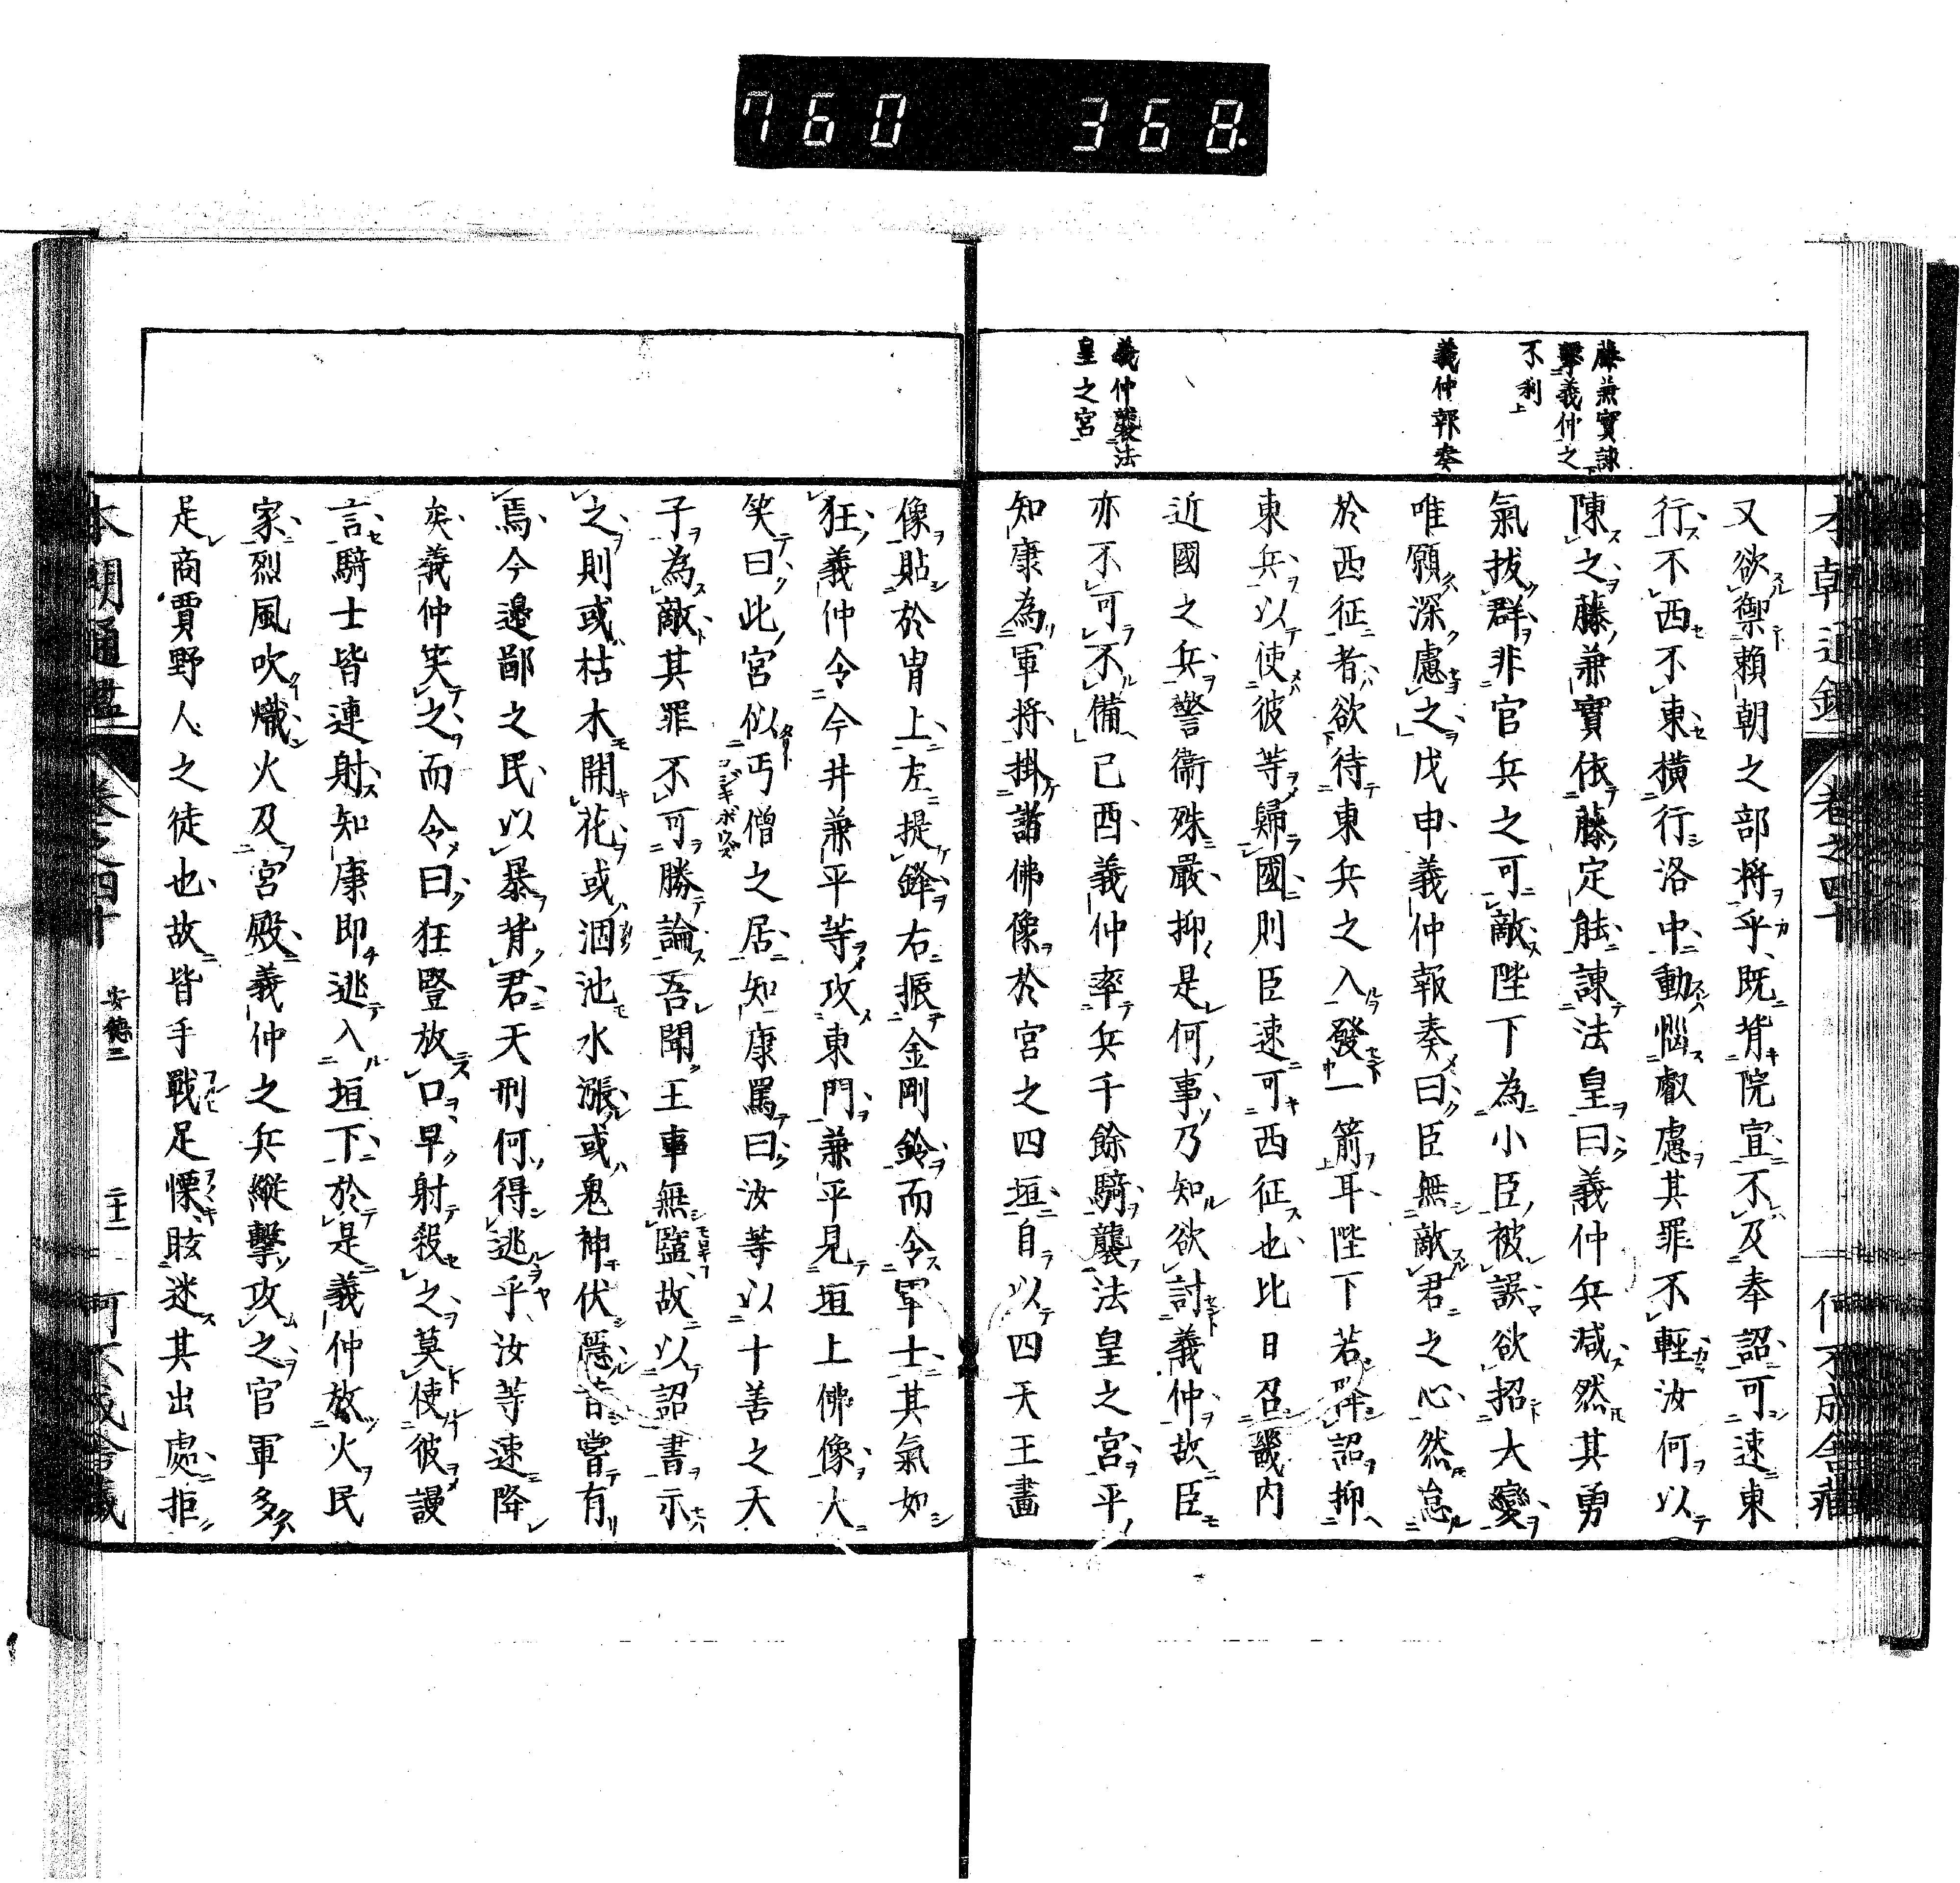 760 368.
藤兼實諫
擊義仲之
不利
義仲報奏
義仲襲法
皇之宮
本朝通鑑 卷之四十
又欲禦賴朝之部將乎既背院宣不及奉詔可速東
行不西不東橫行洛中動惱叡慮其罪不輕汝何以
陳之藤兼實依藤定能諫法皇曰義仲兵減然其勇
氣拔群非官兵之可敵陛下為小臣被誤欲招大變
唯願深慮之戊申義仲報奏曰臣無敵君之心然怠
於西征者欲待東兵之入發一箭耳陛下若降詔抑
東兵以使彼等歸國則臣速可西征也比日召畿內
近國之兵警衞殊嚴抑是何事乃知欲討義仲故臣
亦不可不備己酉義仲率兵千餘騎襲法皇之宮平
知康為軍將掛諸佛像於宮之四垣自以四天王畫
像貼於冑上左提鋒右振金剛鈴而令軍士其氣如
狂義仲令今井兼平等攻東門兼平見垣上佛像大
笑曰此宮似丐僧之居知康罵曰汝等以十善之天
子為敵其罪不可勝論吾聞王事無盬故以詔書示
之則或枯木開花或涸池水漲或鬼神伏隱昔嘗有
焉今邊鄙之民以暴背君天刑何得逃乎汝等速降
矣義仲笑之而令曰狂豎放口早射殺之莫使彼謾
言騎士皆連射知康即逃入垣下於是義仲放火民
家烈風吹熾火及宮殿義仲之兵縱擊攻之官軍多
是商賈野人之徒也故皆手戰足慄眩迷其出處拒
本朝通鑑 卷之四十 安德二 二十二